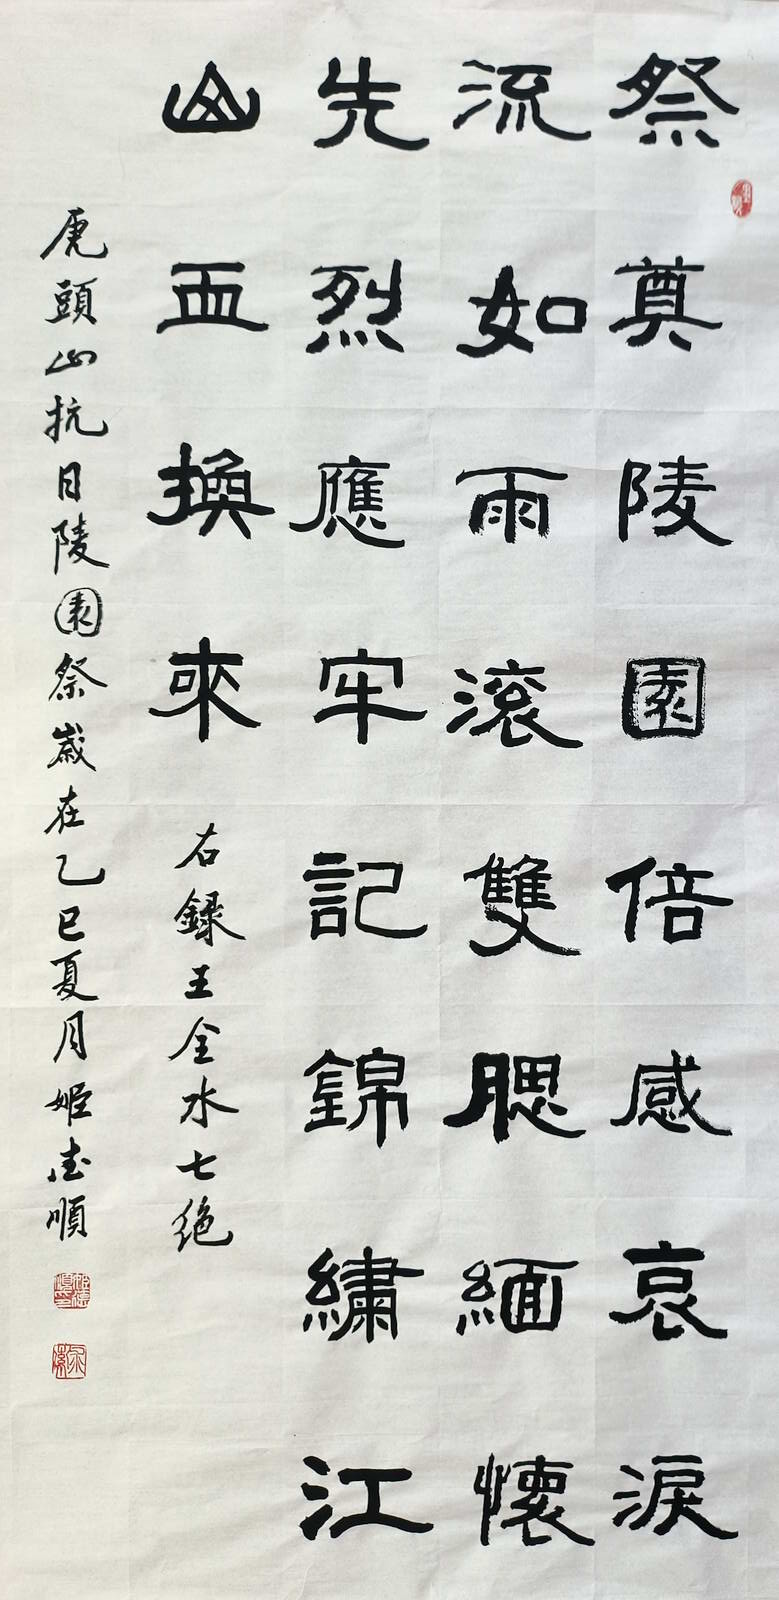 祭奠陵園倍感哀淚
流如雨滚雙腮緬懷
先烈應牢記錦繡江
山血換來
右録王全水七絶
虎頭山抗日陵園祭歲在乙巳夏月姬志順